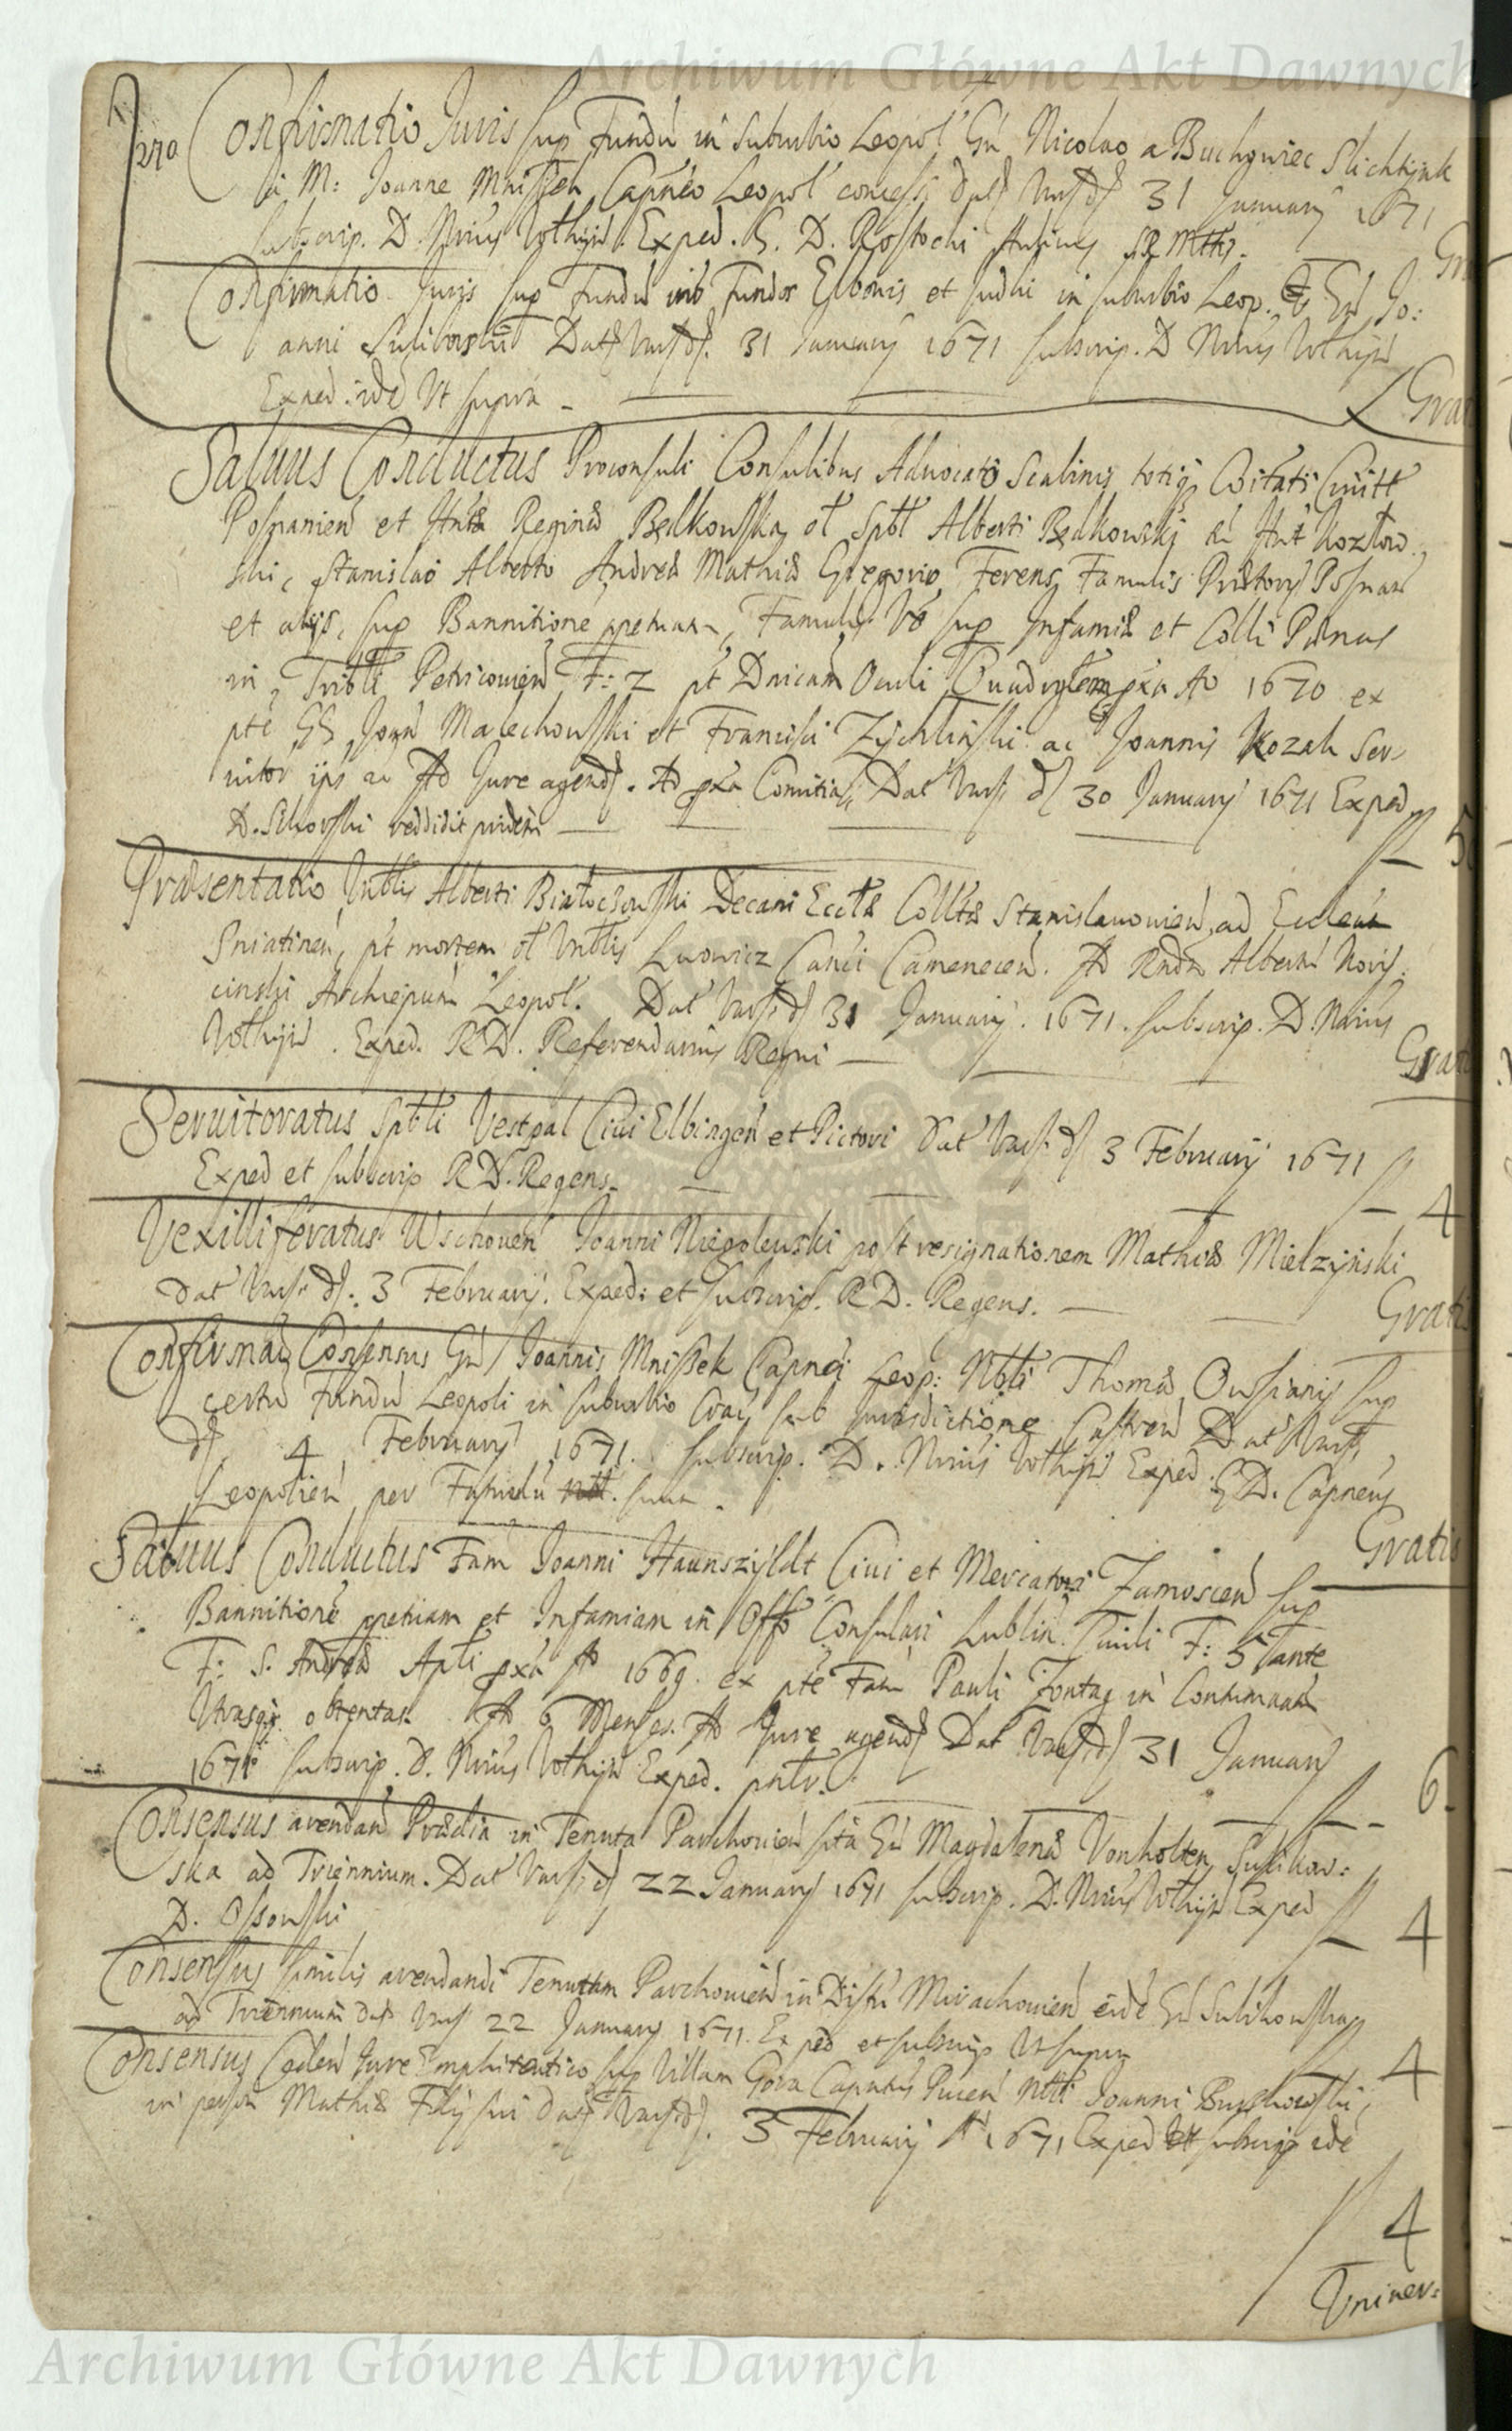 Archiwum Główne Akt Dawnych
Confirmatio Juris sup Fundū in Suburbio Leopol Gn Nicolao a Buchowiec Slichtink
a M: Joanne Mniszek Capneo Leopol concess. Dat Vars d 31 January 1671
subscrip. D. Nrius Vothyn. Exped. G. D. Rostocki
Confirmatio Juris sup Fundū inter Fundos Elbonis et Judei in suburbio Leop. Gn Jo:
anni Suliborski Dat Vars d. 31 January 1671 subscrip. D Nrius Vothyn
Exped. idē Ut supra
Grat
Saluus Conductus Proconsuli Consulibus Aduocato Scabinis totiq Coitati Ciuitt
Posnanien et Hnta Regina Bedkowska ol Spbl Alberti Bedkowski et Hnt Kozłow
ski, Stanislao Alberto Andrea Mathia Gregorio Ferens Famulis Prætory Posnan
et alijs, sup Bannitione ppetuam, Famulis Vo sup Infamia et Colli Pænas
in Tribli Petricouien F: 2 pt Dnicam Oculi Quadrglem pxa Ao 1670 ex
pte GG Joan Malechowski et Francisci Zychlinski ac Joannis Kozak Ser
uitor ips ac Ad Jure agend. Ad pxa Comitia, Dat Vars d 30 January 1671 Exped
D. Sikorski reddidit pridem
Præsentatio Vnblis Alberti Białoczowski Decani Eccla Collta Stanislauouien, ad Ecclesia
Sniatinen, pt mortem ol Vnblis Lwowicz Canci Camenecen. Ad Rndm Albertu Koryc:
cinski Archiepum Leopol. Dat Vars d 31 January. 1671. subscrip. D. Nrius
Vothyn. Exped. R D. Referendarius Regni
Grat
Seruitoratus Spbli Vestpal Ciui Elbingen et Pictori Dat Vars d 3 February 1671
Exped et subscrip R D. Regens.
4
Vexilliferatus Wschouen Joanni Niegolewski post resignationem Mathia Mielzynski
Dat Vars d. 3 February. Exped: et subscrip. R D. Regens.
Grati
Confirmao Consensus Gn Joannis Mniszek Capnei Leop: Nbli Thoma Owsiany sup
certu Fundu Leopoli in suburbio Crac sub Jurisdictione Castren Dat Vars
d 4 February 1671. subscrip. D. Nrius Vothyn Exped. G D. Capneus
Leopolien per Famulu suum.
Gratis
Saluus Conductus Fam Joanni Haunszyldt Ciui et Mercatori Zamoscen sup
Bannitione ppetuam et Infamiam in Offo Consulari Lublin. Ciuili F: 5 ante
F: S. Andrea Apli pxa Ao 1669. ex pte Fam Pauli Zontag in Contumaciam
Utrasq obtentas. Ad 6 Menses. Ad Jure agend Dat Vars d 31 January
1671 subscrip. D. Nrius Vothyn Exped. pntr.
6
Consensus arendan Prædia in Tenuta Parchouien sita Gn Magdalena Vonholten Sulikow:
ska ad Triennium. Dat Vars d 22 January 1671 subscrip. D. Nrius Vothyn Exped
D. Ossowski
4
Consensus similis arendandi Tenutam Parchouien in Distu Mirachouien eidē Gn Sulikowska
ad Triennium Dat Vars 22 January 1671. Exped et subscrip Ut supra
4
Consensus Ceden Jure Emphiteutico sup Villam Gora Capnatus Pucen Nbli Joanni Buchowski,
in person Mathia Flyski Dat Vars d. 3 February A 1671 Exped et subscrip idē
4
Vniuer:
Archiwum Główne Akt Dawnych